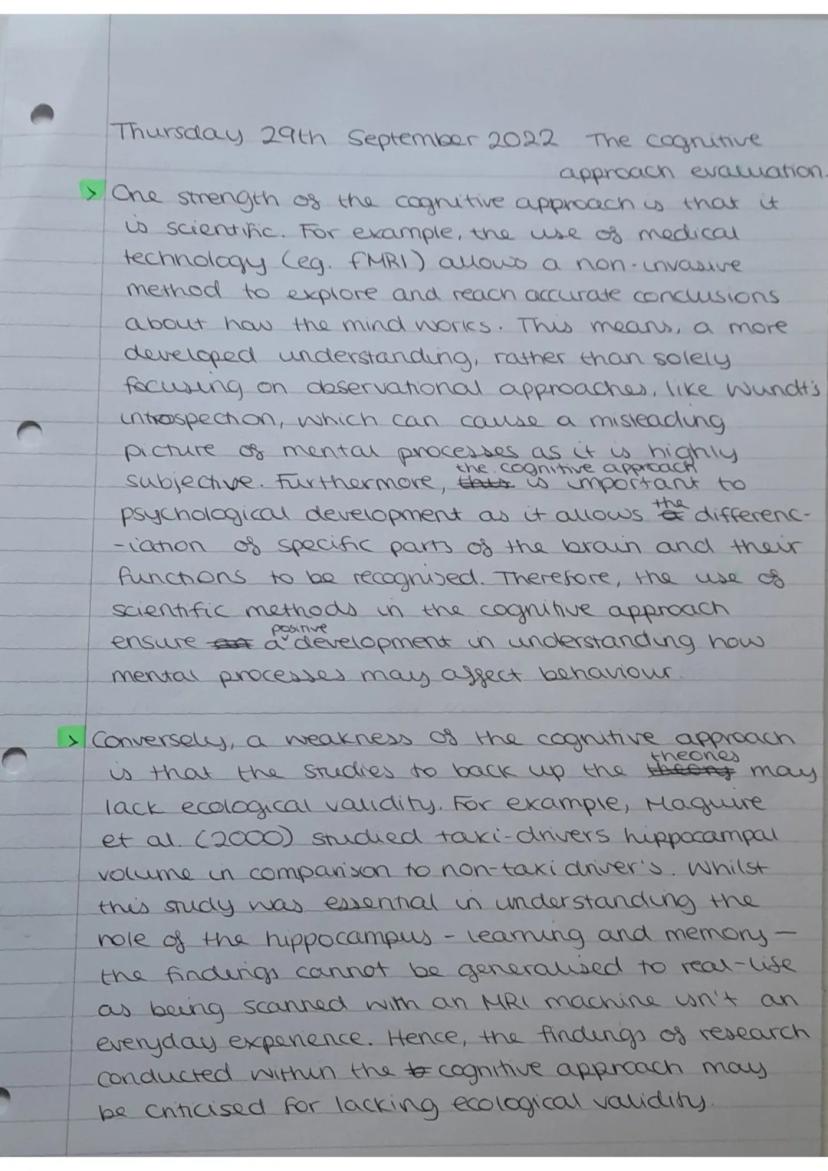 Thursday 29th September 2022 The cognitive
approach evaluation.
> One strength of the cognitive approach is that it
is scientific. For example, the use of medical
technology (eg. fMRI) allows a non-invasive
method to explore and reach accurate conclusions
about how the mind works. This means, a more
developed understanding, rather than solely
focusing on observational approaches, like Wundt's
introspection, which can cause a misleading
picture of mental processes as it is highly
subjective. Furthermore, the cognitive approach is important to
psychological development as it allows the differenc-
-iation of specific parts of the brain and their
functions to be recognised. Therefore, the use of
scientific methods in the cognitive approach
ensure a positive development in understanding how
mental processes may affect behaviour.
> Conversely, a weakness of the cognitive approach
is that the studies to back up the theories may
lack ecological validity. For example, Maguire
et al. (2000) studied taxi-drivers hippocampal
volume in comparison to non-taxi driver's. Whilst
this study was essential in understanding the
role of the hippocampus - learning and memory -
the findings cannot be generalised to real-life
as being scanned with an MRI machine isn't an
everyday experience. Hence, the findings of research
conducted within the cognitive approach may
be criticised for lacking ecological validity.